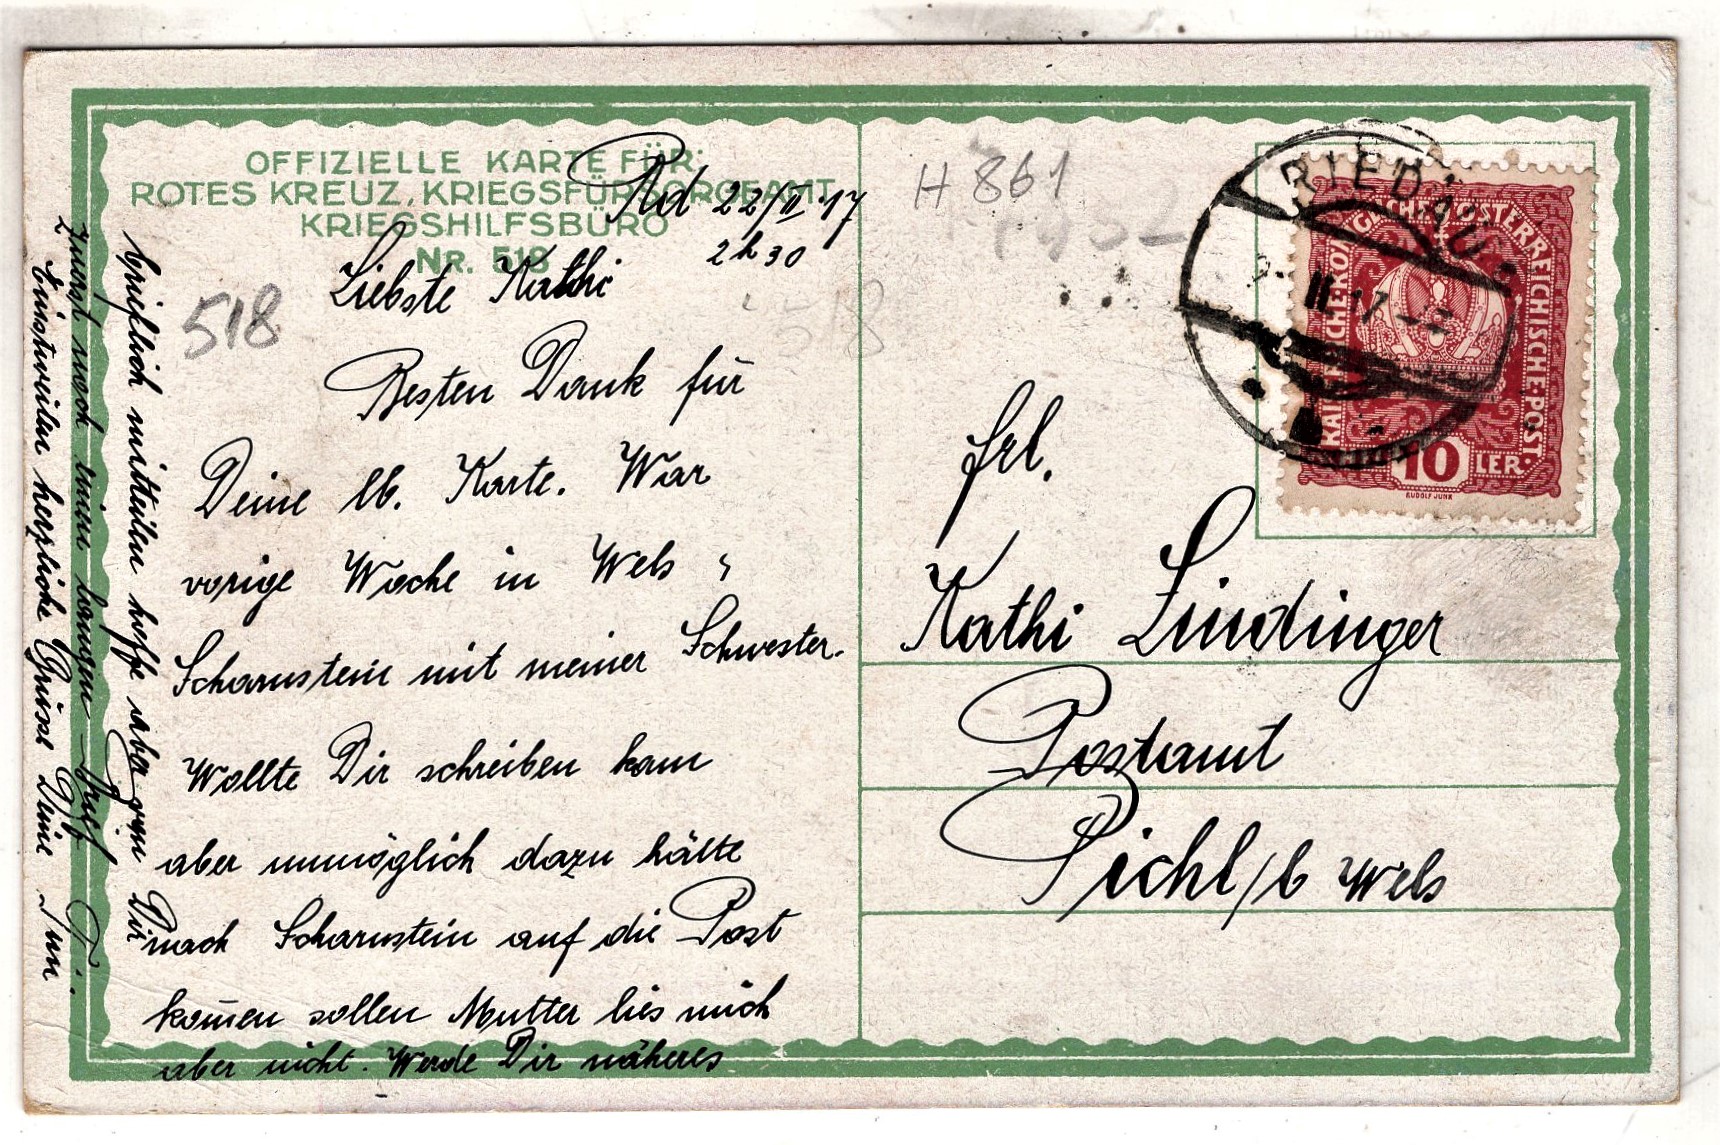 OFFIZIELLE KARTE FÜR:
ROTES KREUZ, KRIEGSFÜRSORGEAMT
KRIEGSHILFSBÜRO
NR. 518
Rd 22/II 17
2 h 30
518
Liebste Kathi
Besten Dank für
Deine lb. Karte. War
vorige Woche in Wels
Scharnstein mit meiner Schwester.
Wollte Dir schreiben kam
aber unmöglich dazu hätte
nach Scharnstein auf die Post
kom̄en sollen Mutter lies mich
aber nicht. Werde Dir näheres
brieflich mitteilen hoffe aber von Dir
zuerst noch einen langen Brief
Einstweilen herzliche Grüsse Deine
H 861
RIED
II 17
KAISERLICHE KÖNIGLICHE ÖSTERREICHISCHE POST
10
LER
RUDOLF JUNK
Frl.
Kathi Lindinger
Postamt
Pichl/b Wels